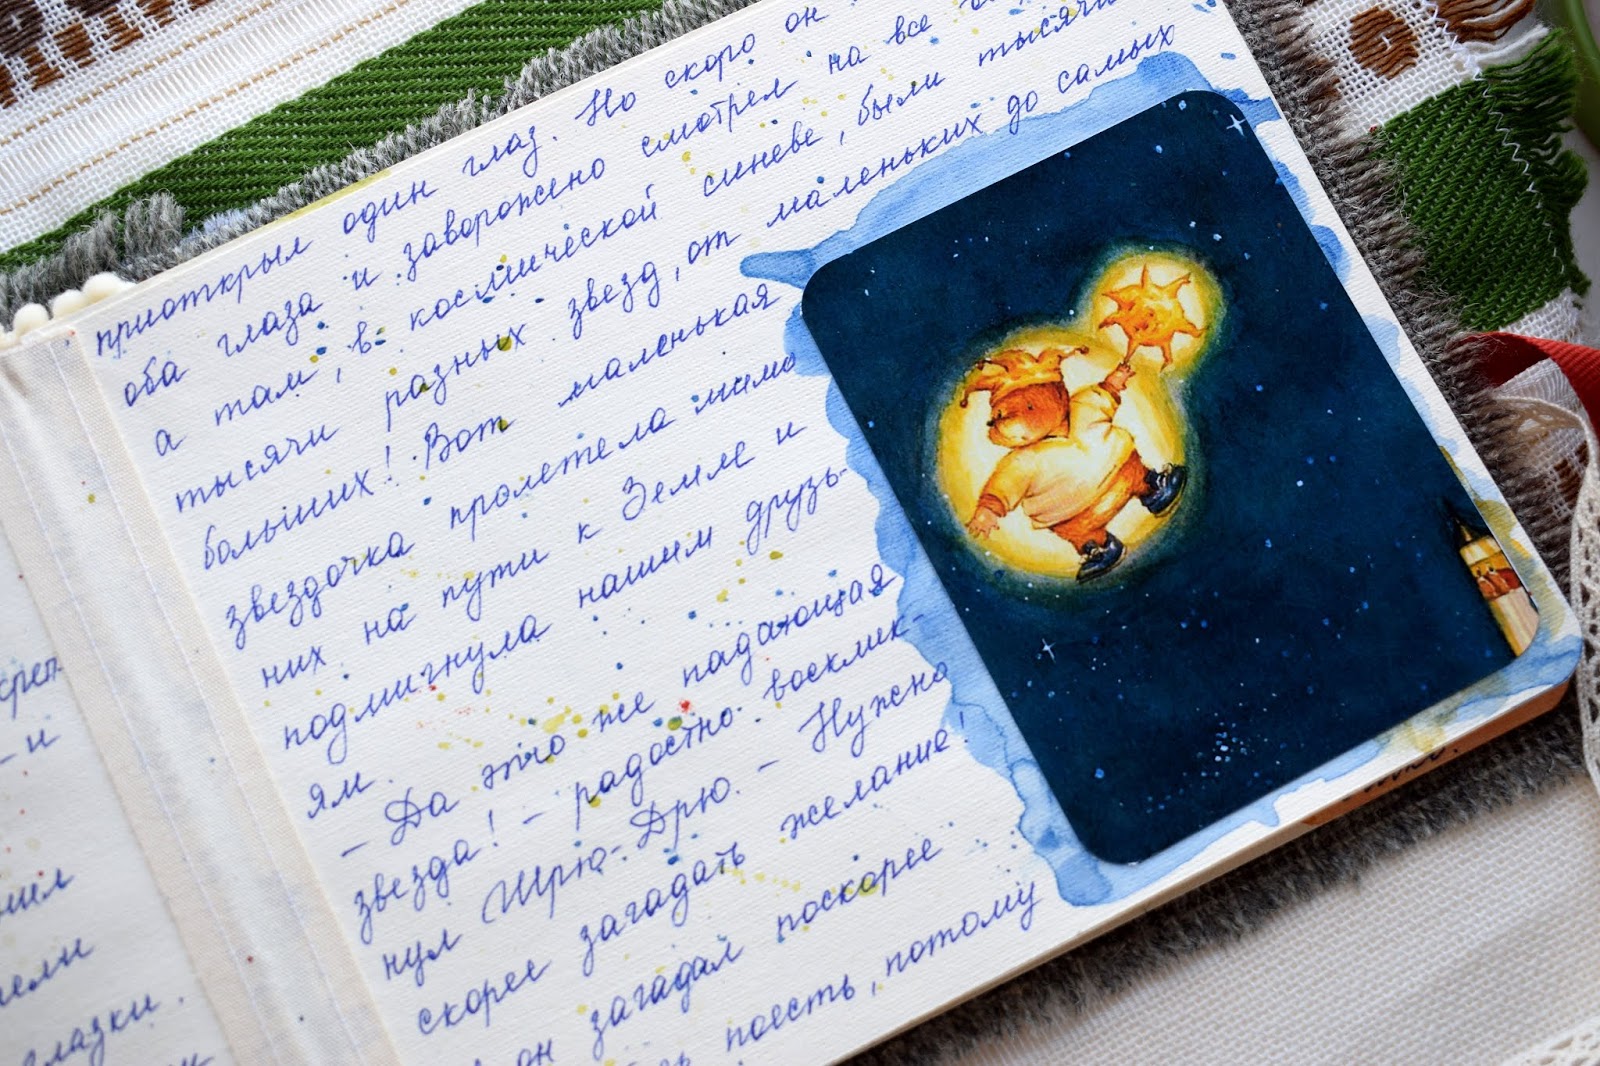 срет-
- и
нил
тели
глазки.
приоткрыл один глаз. Но скоро он
оба глаза и заворожено смотрел на все
а там, в космической синеве, были тысячи
тысячи разных звезд, от маленьких до самых
больших! Вот маленькая
звездочка пролетела мимо
них на пути к Земле и
подмигнула нашим друзь-
ям.
– Да это же падающая
звезда! – радостно воскмик-
нул Шрю-Дрю. – Нужно
скорее загадать желание!
он загадал поскорее
поесть, потому